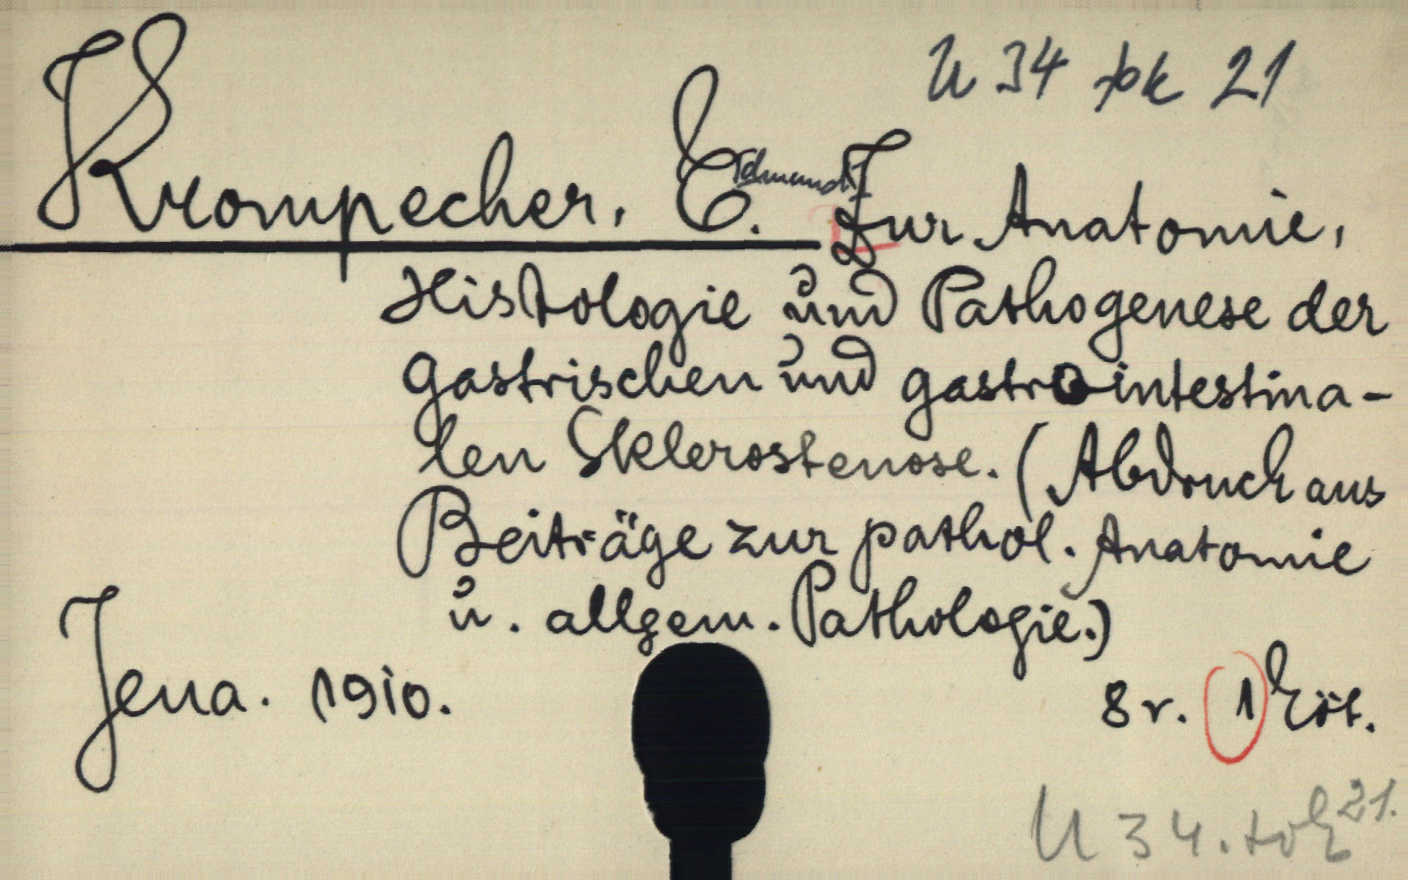 U 34 pk 21
Krompecher, E. Edmund Zur Anatomie,
Histologie und Pathogenese der
gastrischen und gastrointestina-
len Sklerostenose. (Abdruck aus
Beiträge zur pathol. Anatomie
u. allgem. Pathologie.)
Jena. 1910.
8r. 1 köt.
U 34.
21.